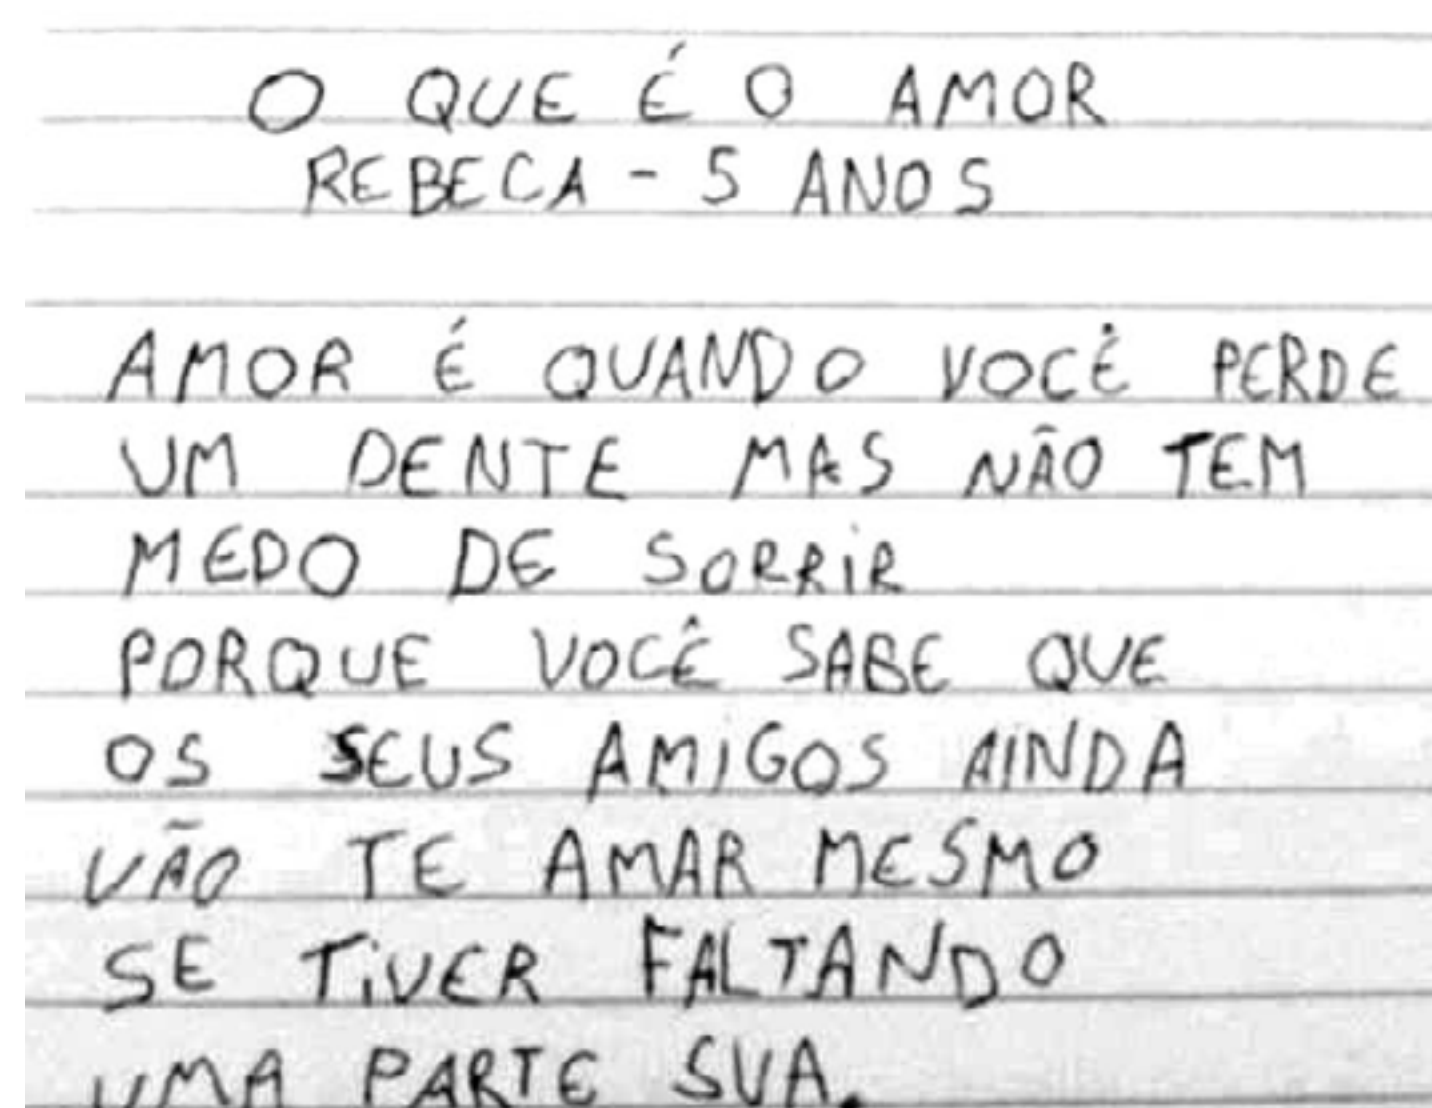 O QUE É O AMOR
REBECA - 5 ANOS
AMOR É QUANDO VOCÊ PERDE
UM DENTE MAS NÃO TEM
MEDO DE SORRiR
PORQUE VOCÊ SABE QUE
OS SEUS AMiGOS AINDA
VÃO TE AMAR MESMO
SE TiVER FALTANDO
UMA PARTE SUA.